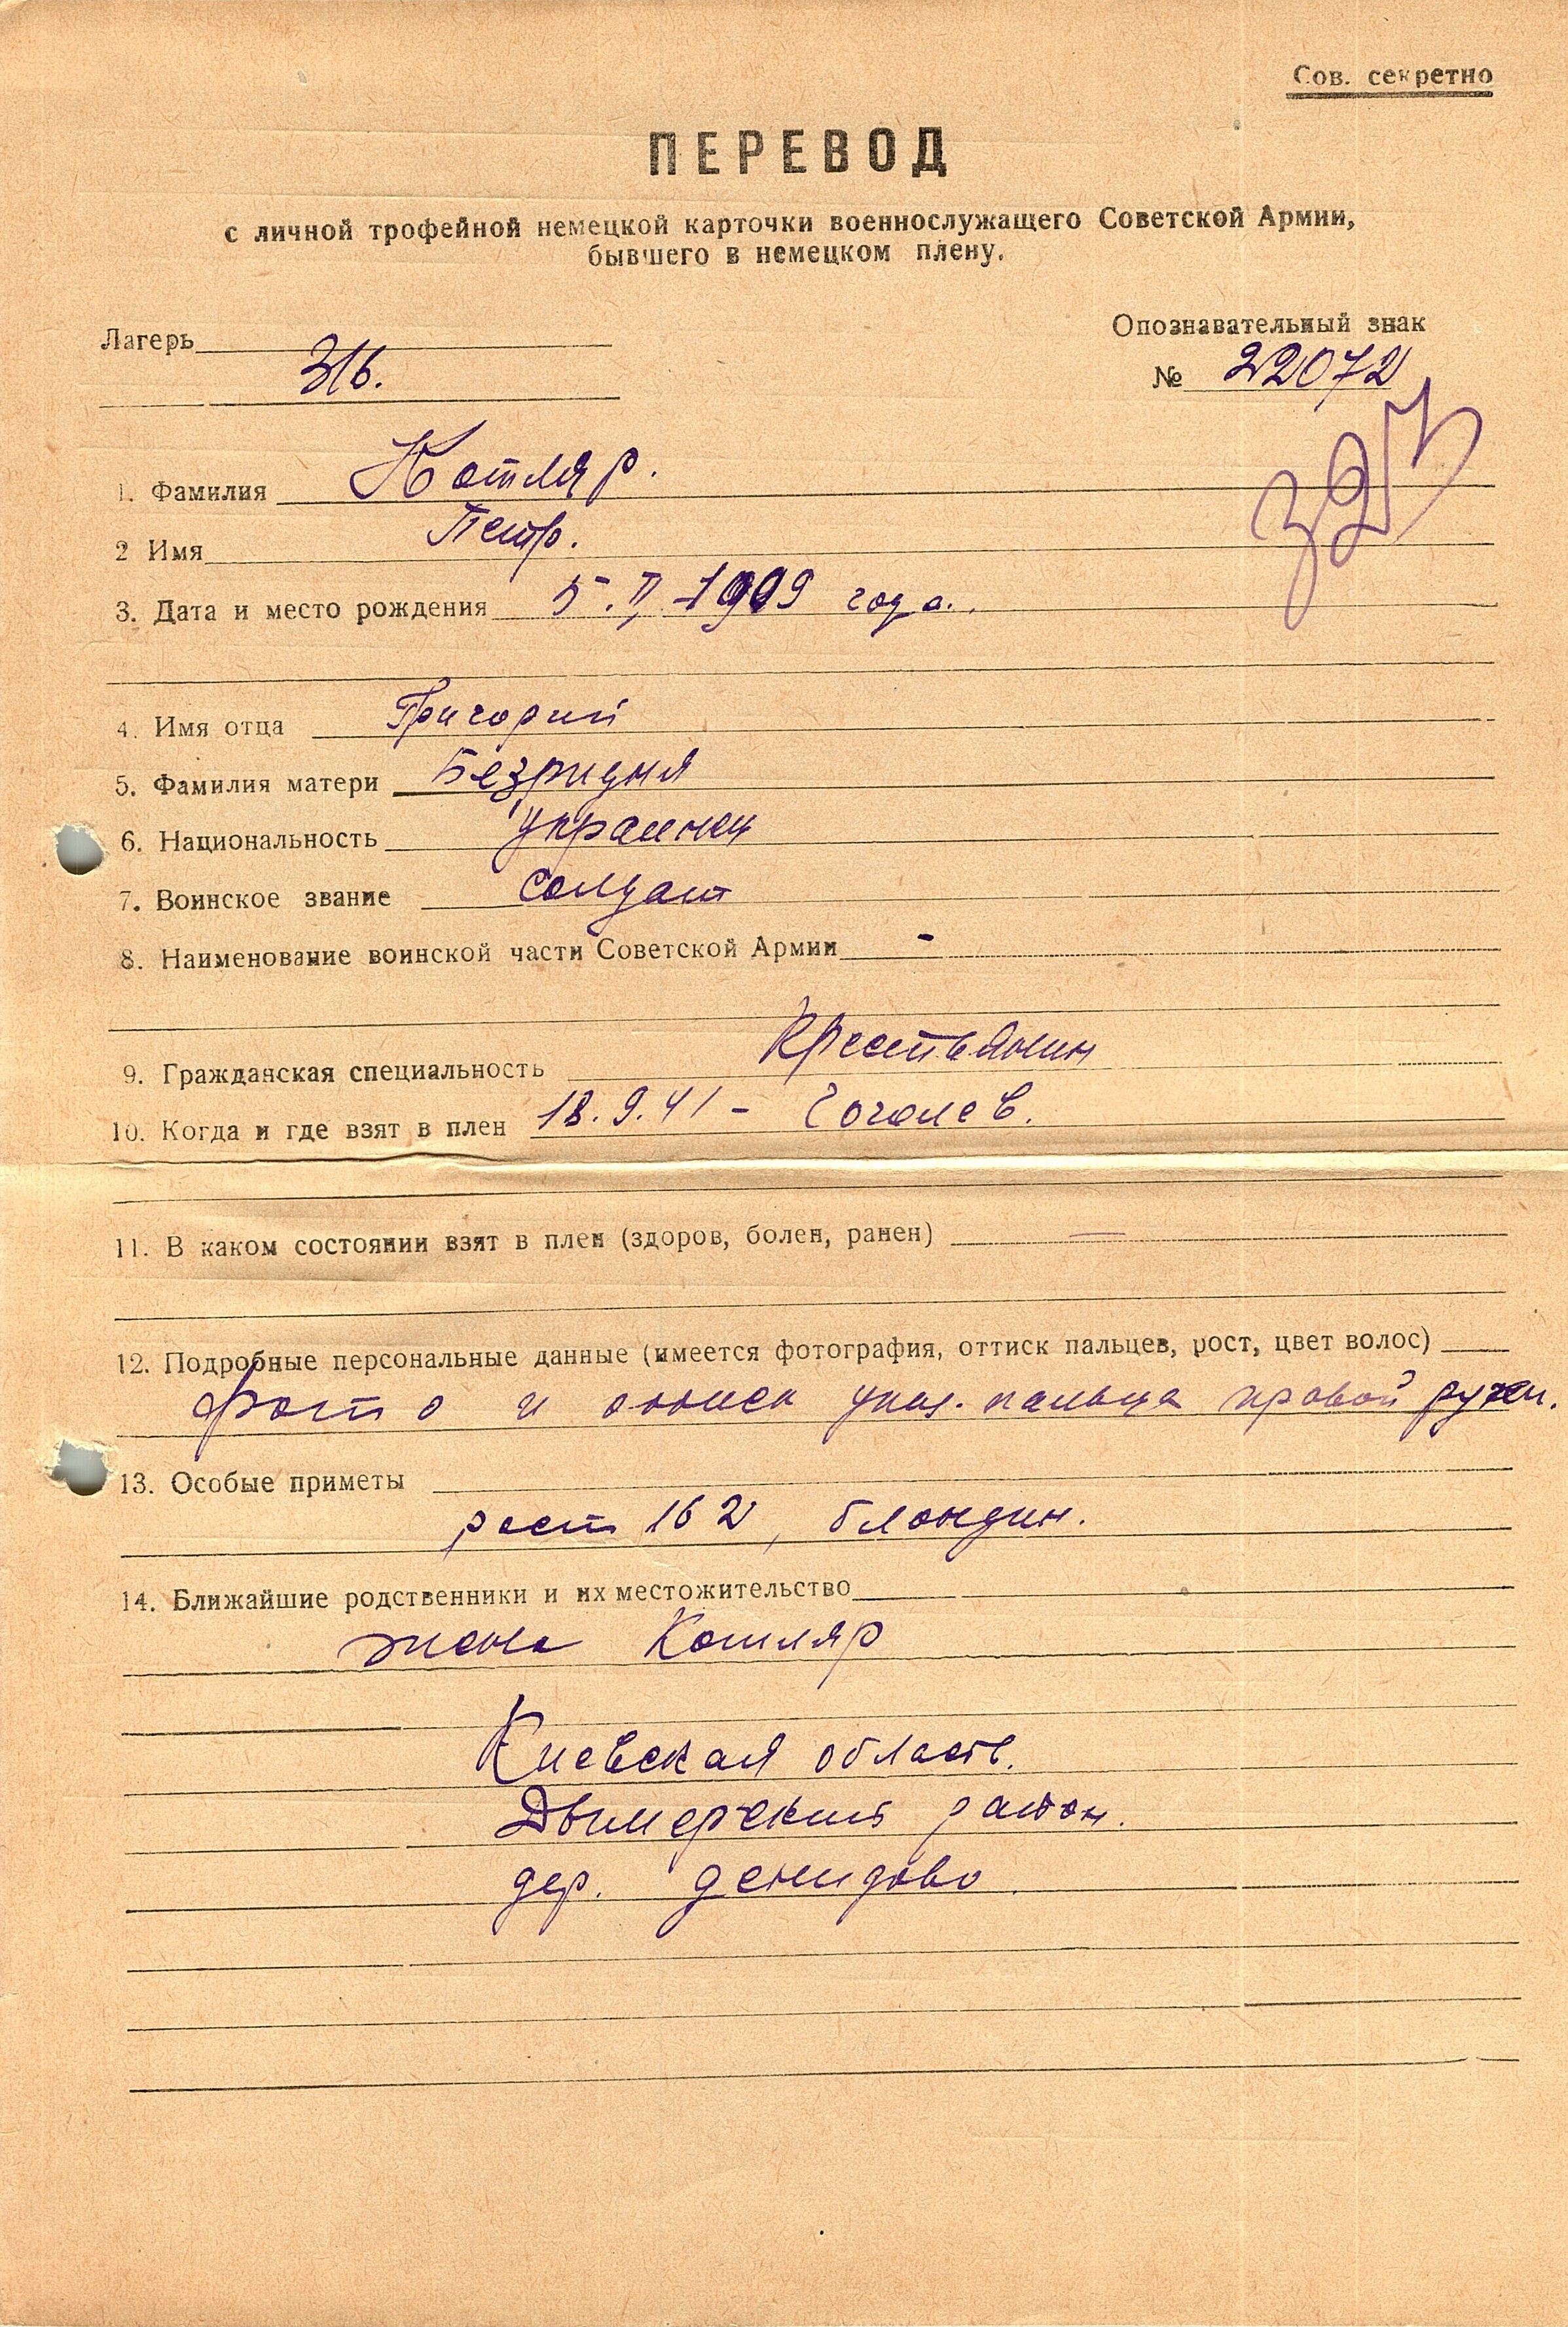 Сов. секретно
ПЕРЕВОД
с личной трофейной немецкой карточки военнослужащего Советской Армии,
бывшего в немецком плену.
Лагерь
316.
Опознавательный знак
№ 22072
1. Фамилия Котляр.
2 Имя Петр.
3. Дата и место рождения 5.II-1909 года.
4. Имя отца Григорий
5. Фамилия матери Безридня
6. Национальность украинец
7. Воинское звание солдат
8. Наименование воинской части Советской Армии -
9. Гражданская специальность Крестьянин
10. Когда и где взят в плен 18.9.41 - Гоголев.
11. В каком состоянии взят в плен (здоров, болен, ранен) —
12. Подробные персональные данные (имеется фотография, оттиск пальцев, рост, цвет волос)
фото и оттиск указ. пальца правой руки.
13. Особые приметы
рост 162, блондин.
14. Ближайшие родственники и их местожительство
жена Котляр
Киевская область.
Дымерский район.
дер. Демидово.